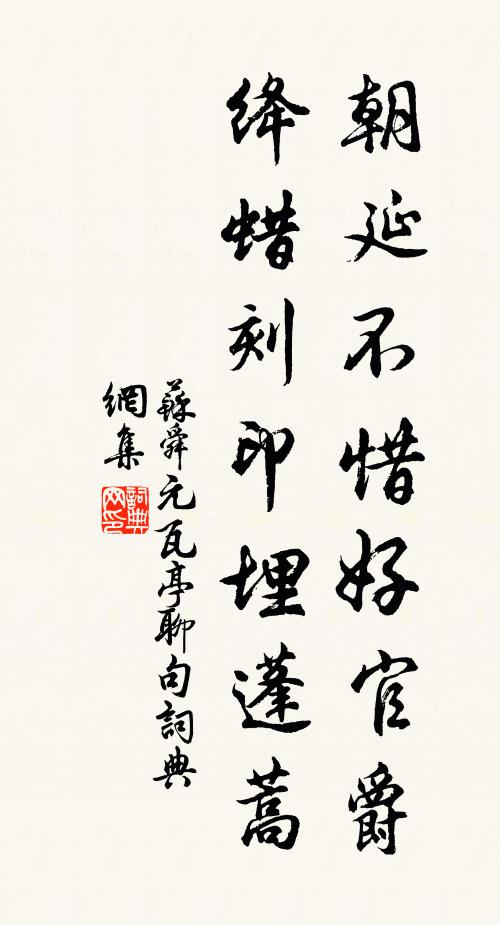 朝延不惜好官爵
绛蜡刻印埋蓬蒿
蘇舜元瓦亭聊句詞典
網集
詞典
网印